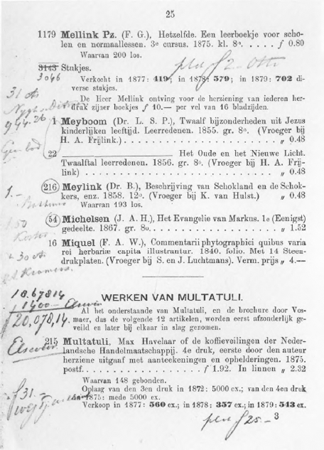 25
1179 Mellink Pz. (F. G.), Hetzelfde. Een leerboekje voor scho-
len en normaallessen. 3e cursus. 1875. kl. 8o. . f 0.80
Waarvan 200 los.
3143 Stukjes.
3046
Verkocht in 1877: 419; in 1878: 579; in 1879: 702 di-
verse stukjes.
De Heer Mellink ontving voor de herziening van iederen her-
druk zijner boekjes f 10.— per vel van 16 bladzijden.
1 Meyboom (Dr. L. S. P.), Twaalf bijzonderheden uit Jezus
kinderlijken leeftijd. Leerredenen. 1855. gr. 8o. (Vroeger bij
H. A. Frijlink.)
22 —— Het Oude en het Nieuwe Licht.
Twaalftal leerredenen. 1856. gr. 8o. (Vroeger bij H. A. Frij-
link)
216 Meylink (Dr. B.), Beschrijving van Schokland en de Schok-
kers, enz. 1858. 12o. (Vroeger bij K. van Hulst.) - 0.60
Waarvan 193 los.
54 Michelsen (J. A. H.), Het Evangelie van Markus. 1e (Eenigst)
gedeelte. 1867. gr. 8o. - 1.52
16 Miquel (F. A. W.), Commentarii phytographici quibus varia
rei herbariæ capita illustrantur. 1840. folio. Met 14 Steen-
drukplaten. (Vroeger bij S. en J. Luchtmans). Verm. prijs „ 4.—
10.678.14
1400
f 20,078,14
WERKEN VAN MULTATULI.
Al het onderstaande van Multatuli, en de brochure door Vos-
maer, dus de volgende 12 artikelen, worden eerst afzonderlijk ge-
veild en later bij elkaar in slag genomen.
215 Multatuli, Max Havelaar of de koffieveilingen der Neder-
landsche Handelmaatschappij. 4e druk, eerste door den auteur
herziene uitgaaf met aanteekeningen en ophelderingen. 1875.
postf. f 1.92. In linnen „ 2.32
Waarvan 148 gebonden.
Oplaag van den 3en druk in 1872: 5000 ex.; van den 4en druk
in 1875: mede 5000 ex.
Verkoop in 1877: 560 ex.; in 1878: 357 ex.; in 1879: 543 ex.
f 25.-
3